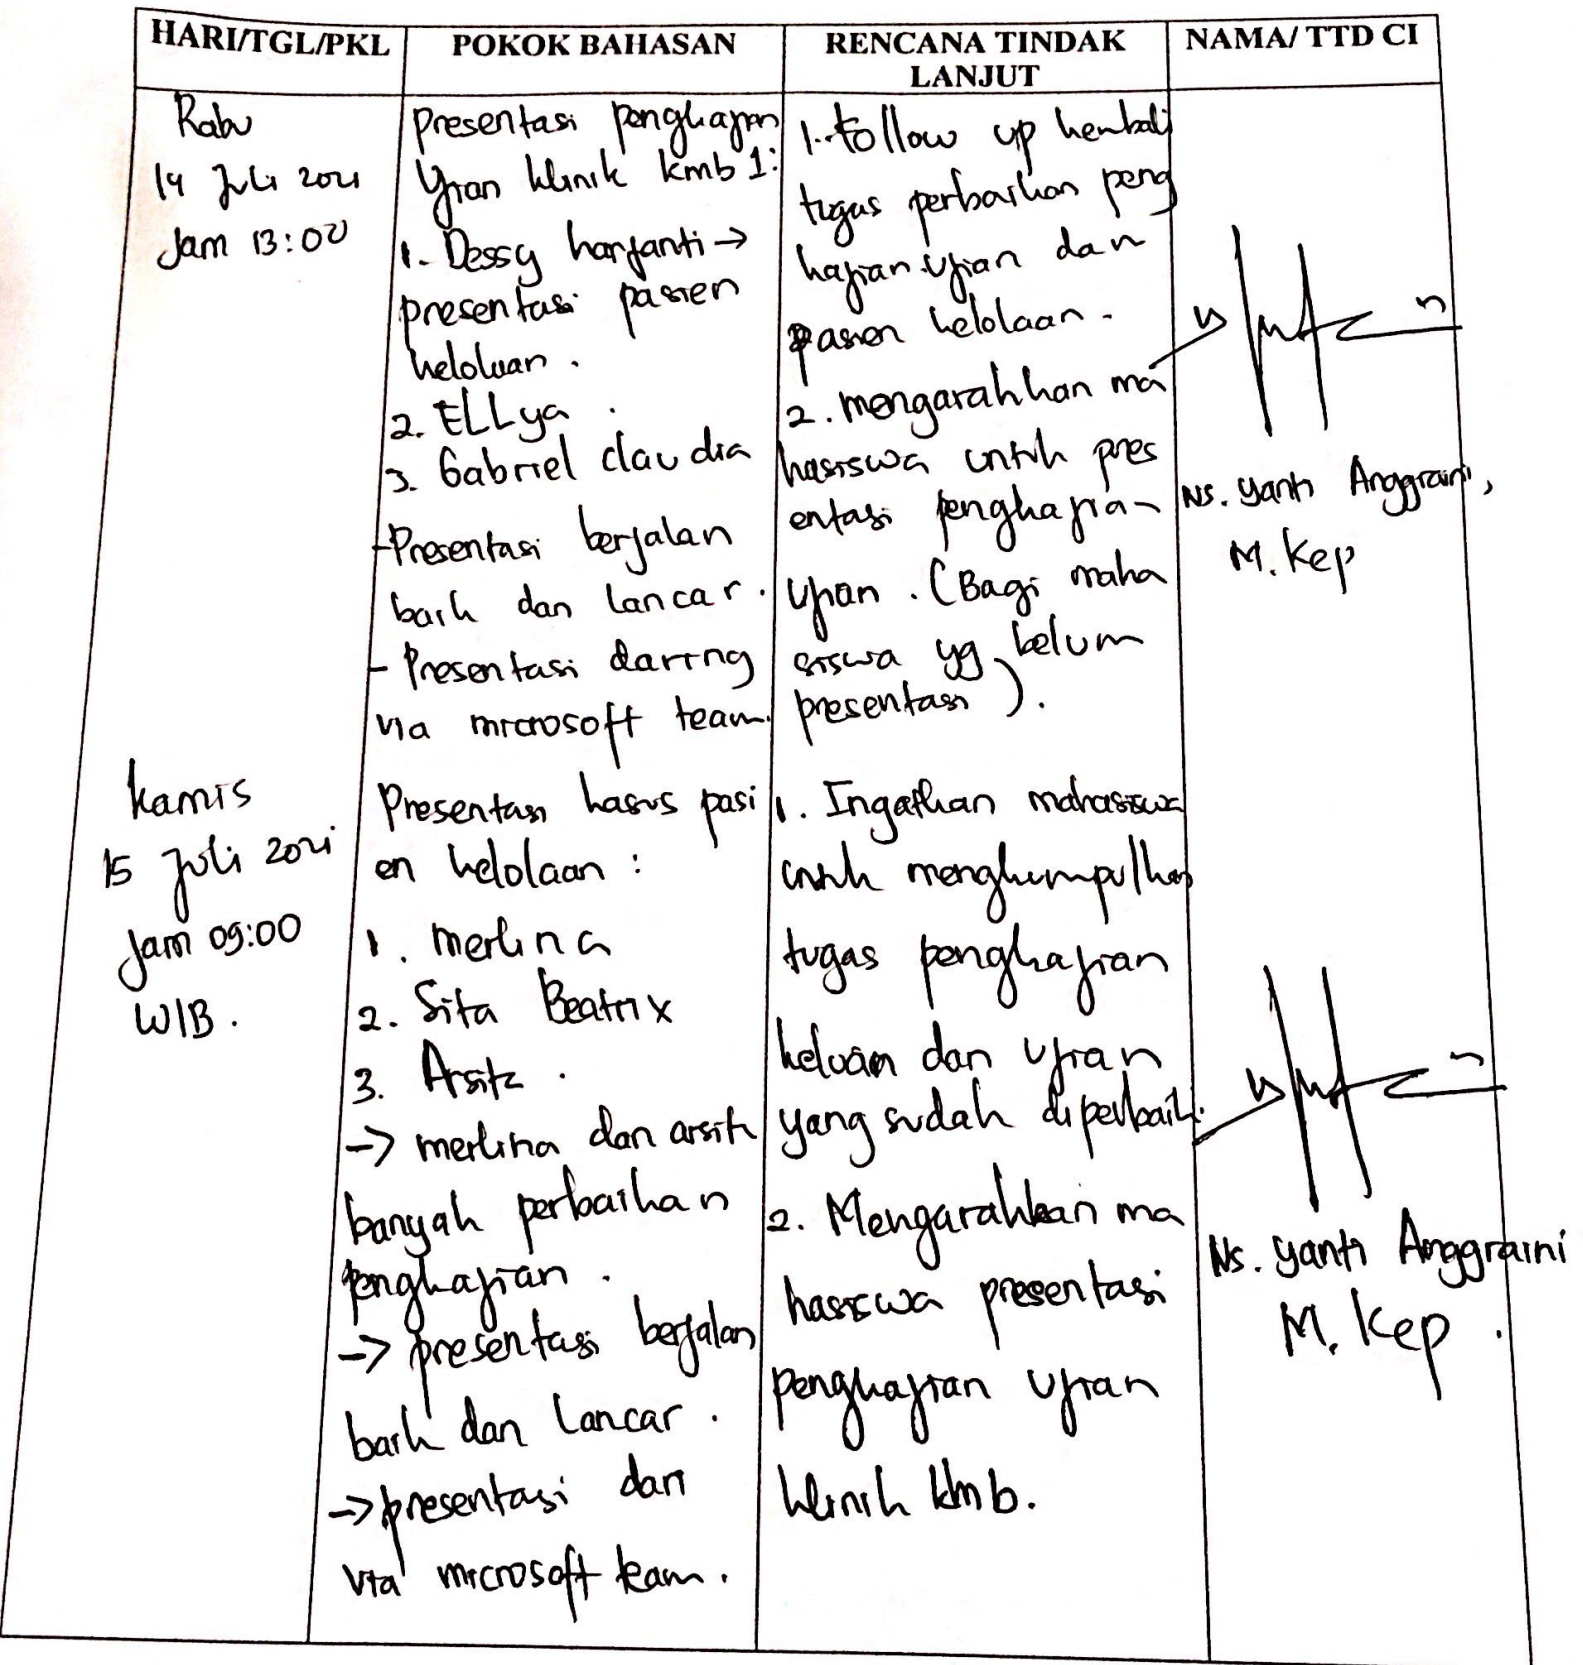 HARI/TGL/PKL
POKOK BAHASAN
RENCANA TINDAK
LANJUT
NAMA/ TTD CI
Rabu
14 Juli 2021
Jam 13:00
Presentasi pengkajian
Ujian klinik kmb 1:
1. Dessy harjanti →
presentasi pasien
kelolaan .
2. ELLya .
3. Gabriel claudia
-Presentasi berjalan
baik dan lancar .
- Presentasi daring
via microsoft team.
1. Follow up kembali
tugas perbaikan peng
kajian ujian dan
pasien kelolaan .
2. mengarahkan ma
hasiswa untuk pres
entasi pengkajian
ujian . (Bagi maha
siswa yg belum
presentasi ) .
Ns. Yanti Anggraini,
M. Kep
kamis
15 Juli 2021
Jam 09:00
WIB .
Presentasi kasus pasi
en kelolaan :
1. merlina
2. Sita Beatrix
3. Arsita .
→ merlina dan arsita
banyak perbaikan
pengkajian .
→ presentasi berjalan
baik dan lancar .
→ presentasi dari
via microsoft team .
1. Ingatkan mahasiswa
untuk mengkumpulkan
tugas pengkajian
keloan dan ujian
yang sudah diperbaik.
2. Mengarahkan ma
hasiswa presentasi
pengkajian ujian
klinik kmb.
Ns. Yanti Anggraini
M. Kep .